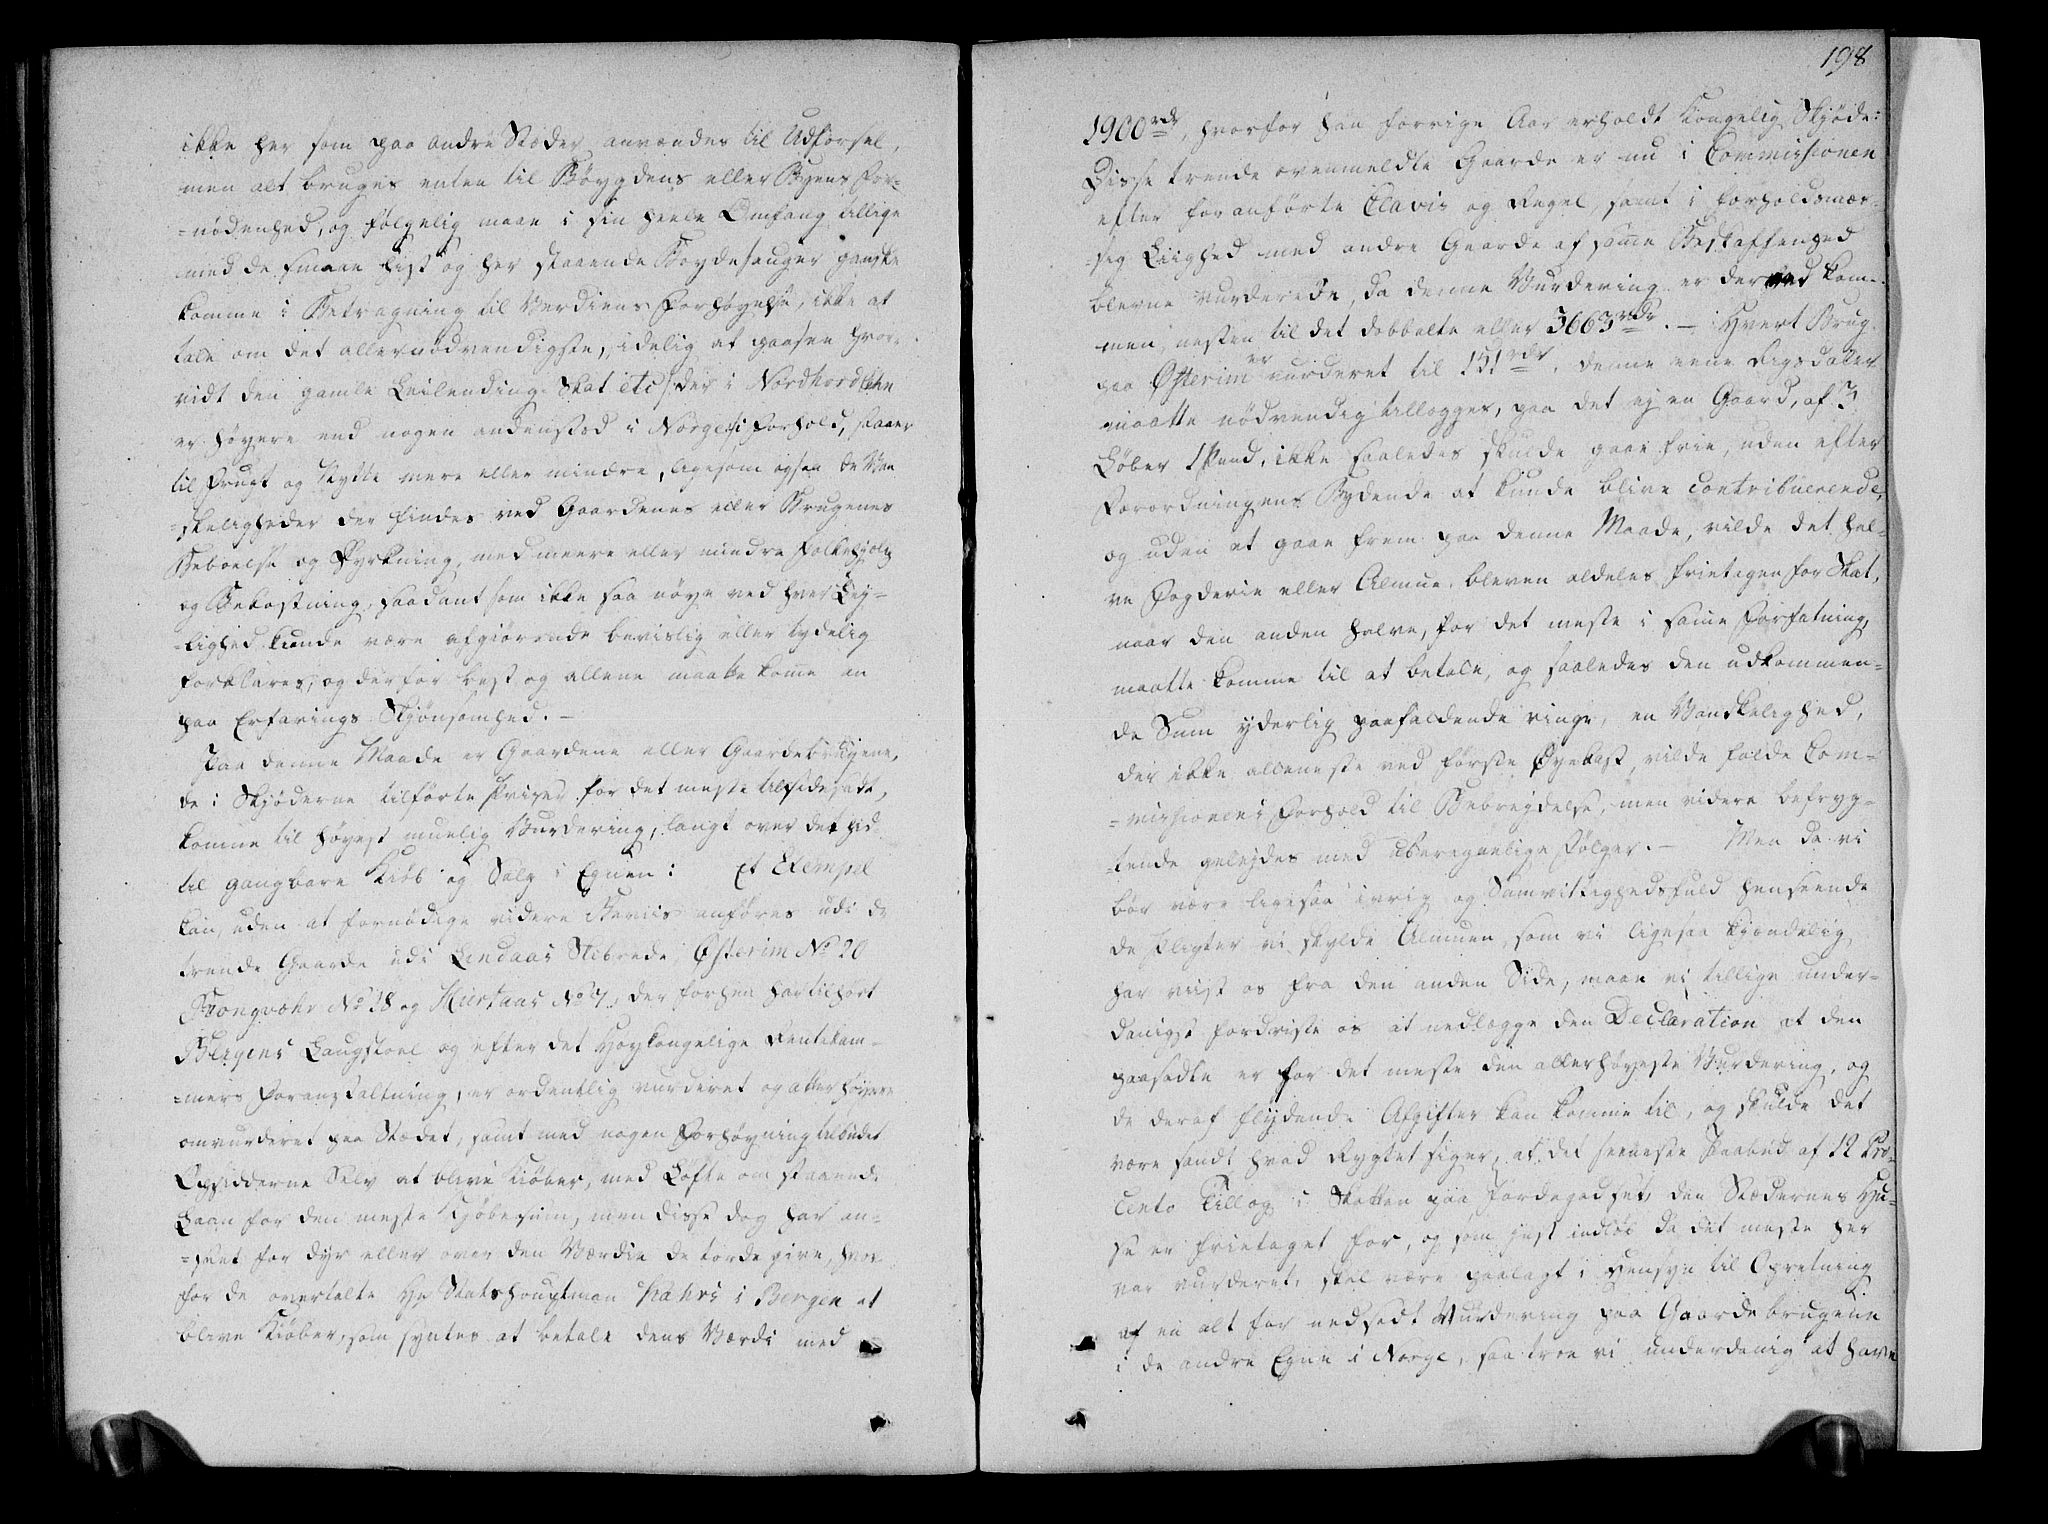 ikke her som paa andre Stæder anvendes til Udförsel,
men alt bruges enten til Bøygdens eller Byens For-
=nödenhed, og følgelig maae i sin heele Omfang tillige
med de smaae hist og her staaende Boydesauger ganske
komme i Betragning til Verdiens Forhøyelse, ikke at
tale om det allernödvendigste, idelig at paasee hvor-
vidt den gamle Leilending Skat etc der i Nordhordlehn
er höyere end nogen andenstæd i Norge i Forhold, staaer
til Frugt og Nytte mere eller mindre, ligesom ogsaa de Van
=skeligheder der findes ved Gaardenes eller Brugenes
Beboelse og Dyrkning, med meere eller mindre Folkehjelp
og Bekostning, saadant som ikke saa nöye ved hver Ley-
=lighed kunde være afgiörende beviislig eller tydelig
forklares, og derfor best og allene maatte komme an
paa Erfarings Skjönsomhed. –
Paa denne Maade er Gaardene eller Gaardebrugene,
de i Skjöderne tilförte Priser for det meste tilsidesadt,
komne til höyest muelig Vurdering, langt over det hid
til gangbare Kiöb og Salg i Egnen: Et Exempel
kan, uden at fornödige videre Beviis anföres udi de
trende Gaarde udi Lindaas Skibrede, Østerim No 20
Fongvæhr No 28 og Hiertaas No 7, der forhen har tilhört
Bergens Laugstoel og efter det Høykongelige Rentekam-
=mers Foranstaltning, er ordentlig vurderet og atter höyere
omvurderet paa Stædet, samt med nogen Forhöyning tilbudet
Opsidderne Selv at blive Kiöber, med Löfte om staaende
Laan for den meste Kjöbesum, men disse dog har an-
=seet for dyr eller over den Værdie de torde give, hvor
for de overtalte Hr Stadshauptman Kahrs i Bergen at
blive Kiöber, som syntes at betale dens Værdi med
198
1900 rdr, hvorfor han forrige Aar erholdt Kongelig Skjöde:
Disse trende ovenmeldte Gaarde er nu i Commissionen
efter foranförte Clavis og Regel, samt i forholdsmæs-
=sig Liighed med andre Gaarde af samme Beskaffenhed
blevne vurderede, da denne Vurdering er derved kom-
men, nesten til det dobbelte eller 3663 rdr. – Hvert Brug
paa Østerim er vurderet til 151 rdr, denne eene Rigsdaler
maatte nödvendig tillægges, paa det ej en Gaard, af 3
Löber 1 Pund, ikke saaledes skulde gaae frie, uden efter
Forordningens Bydende at kunde blive contribuerende,
og uden at gaae frem paa denne Maade, vilde det hal-
ve Fogderie eller Almue bleven aldeles frietagen for Skat,
naar den anden halve, for det meste i samme Forfatning,
maatte komme til at betale, og saaledes den udkommen-
de Sum yderlig paafaldende ringe, en Vanskelighed,
der ikke alleneste ved förste Öyekast, vilde falde Com-
=missionens Forhold til Bebrejdelse, men videre befryg-
=tende geleydes med ubereguelige Fölger. – Men da vi
bör være ligesaa ivrig og Samvittighedsfuld henseende
de Pligter vi skylde Almuen, som vi ligesaa kjendelig
har viist os fra den anden Side, maae vi tillige under-
danigst fordriste os at nedlægge den Declaration at den
paasadte er for det meste den allerhöyeste Vurdering, og
de deraf flydende Afgifter kan komme til, og skulde det
være sandt hvad Rygtet siger, at det seeneste Paabud af 12 Pro-
Cento Tillæg i Skatten paa Jordegodset, den Stædernes Hu-
se er frietaget for, og som just indlöb da det meste her
var vurderet, skal være paalagt i Hensyn til Opretning
af en alt for nedsadt Vurdering paa Gaardebrugene
i de andre Egne i Norge, saa troe vi underdanig at have